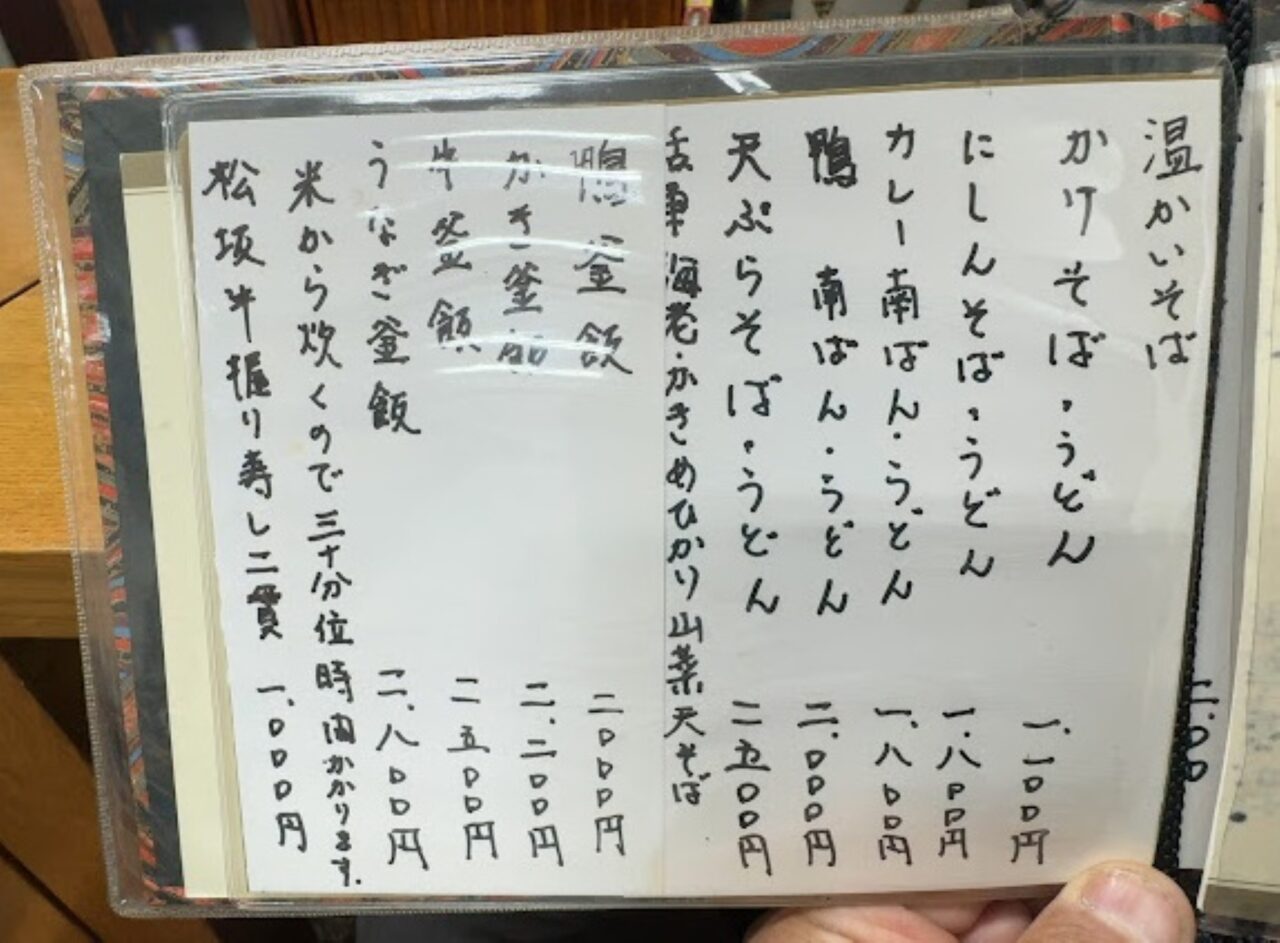 温かいそば
かけそば・うどん 一、二〇〇円
にしんそば・うどん 一、八〇〇円
カレー南ばん・うどん 一、八〇〇円
鴨 南ばん・うどん 二、〇〇〇円
天ぷらそば・うどん 二五〇〇円
海老・かきめひかり山菜天そば
鴨釜飯 二〇〇〇円
かき釜飯 二、二〇〇円
牛釜飯 二五〇〇円
うなぎ釜飯 二、八〇〇円
米から炊くので三十分位時間かかります。
松坂牛握り寿し二貫 一、〇〇〇円